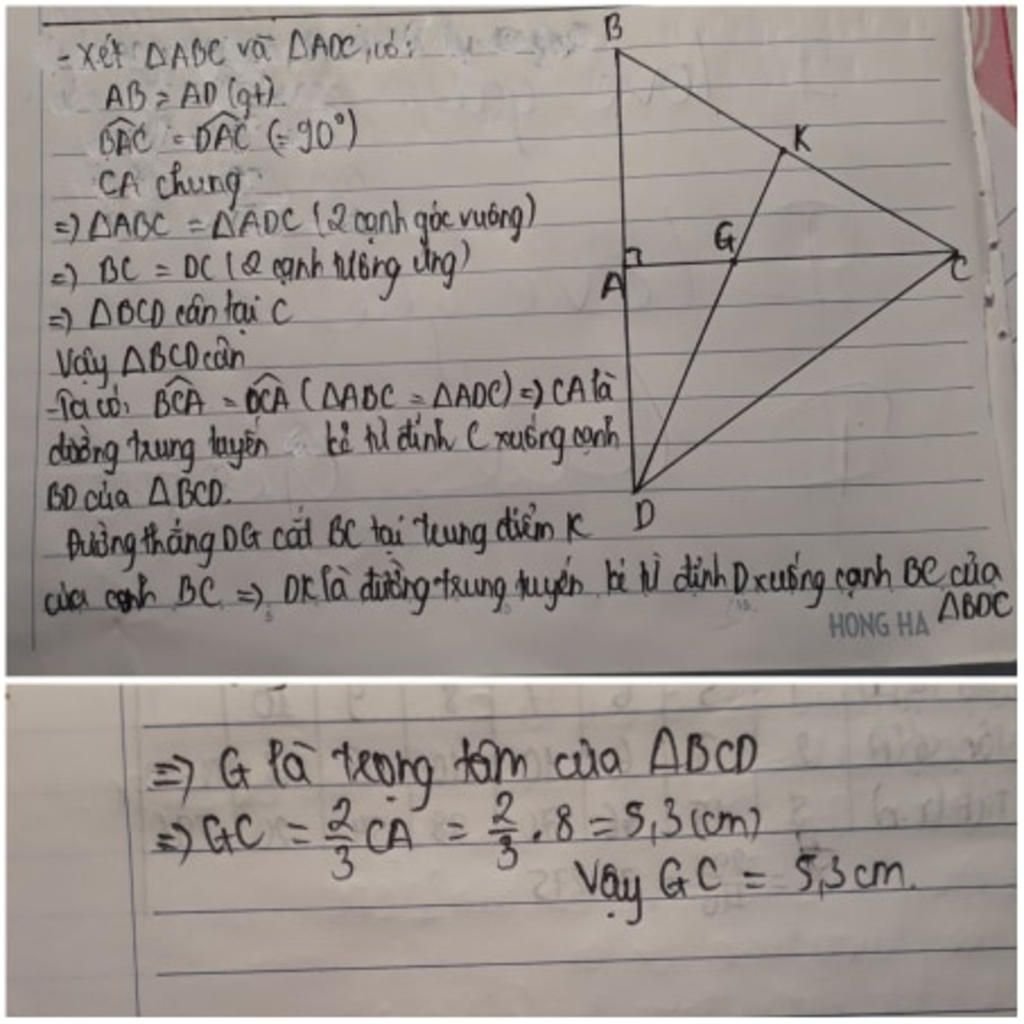 - Xét ΔABC và ΔADC, có:
AB = AD (gt)
B̂AC = D̂AC (= 90°)
CA chung
=> ΔABC = ΔADC (2 cạnh góc vuông)
=> BC = DC (2 cạnh tương ứng)
=> ΔBCD cân tại C
Vậy ΔBCD cân
- Ta có: B̂CA = D̂CA (ΔABC = ΔADC) => CA là
đường trung tuyến kẻ từ đỉnh C xuống cạnh
BD của ΔBCD.
Đường thẳng DG cắt BC tại trung điểm K
của cạnh BC => DK là đường trung tuyến kẻ từ đỉnh D xuống cạnh BC của
ΔBDC
HONG HA
B
K
G
A
C
D
=> G là trọng tâm của ΔBCD
=> GC = 2/3 CA = 2/3 . 8 = 5,3 (cm)
Vậy GC = 5,3 cm.